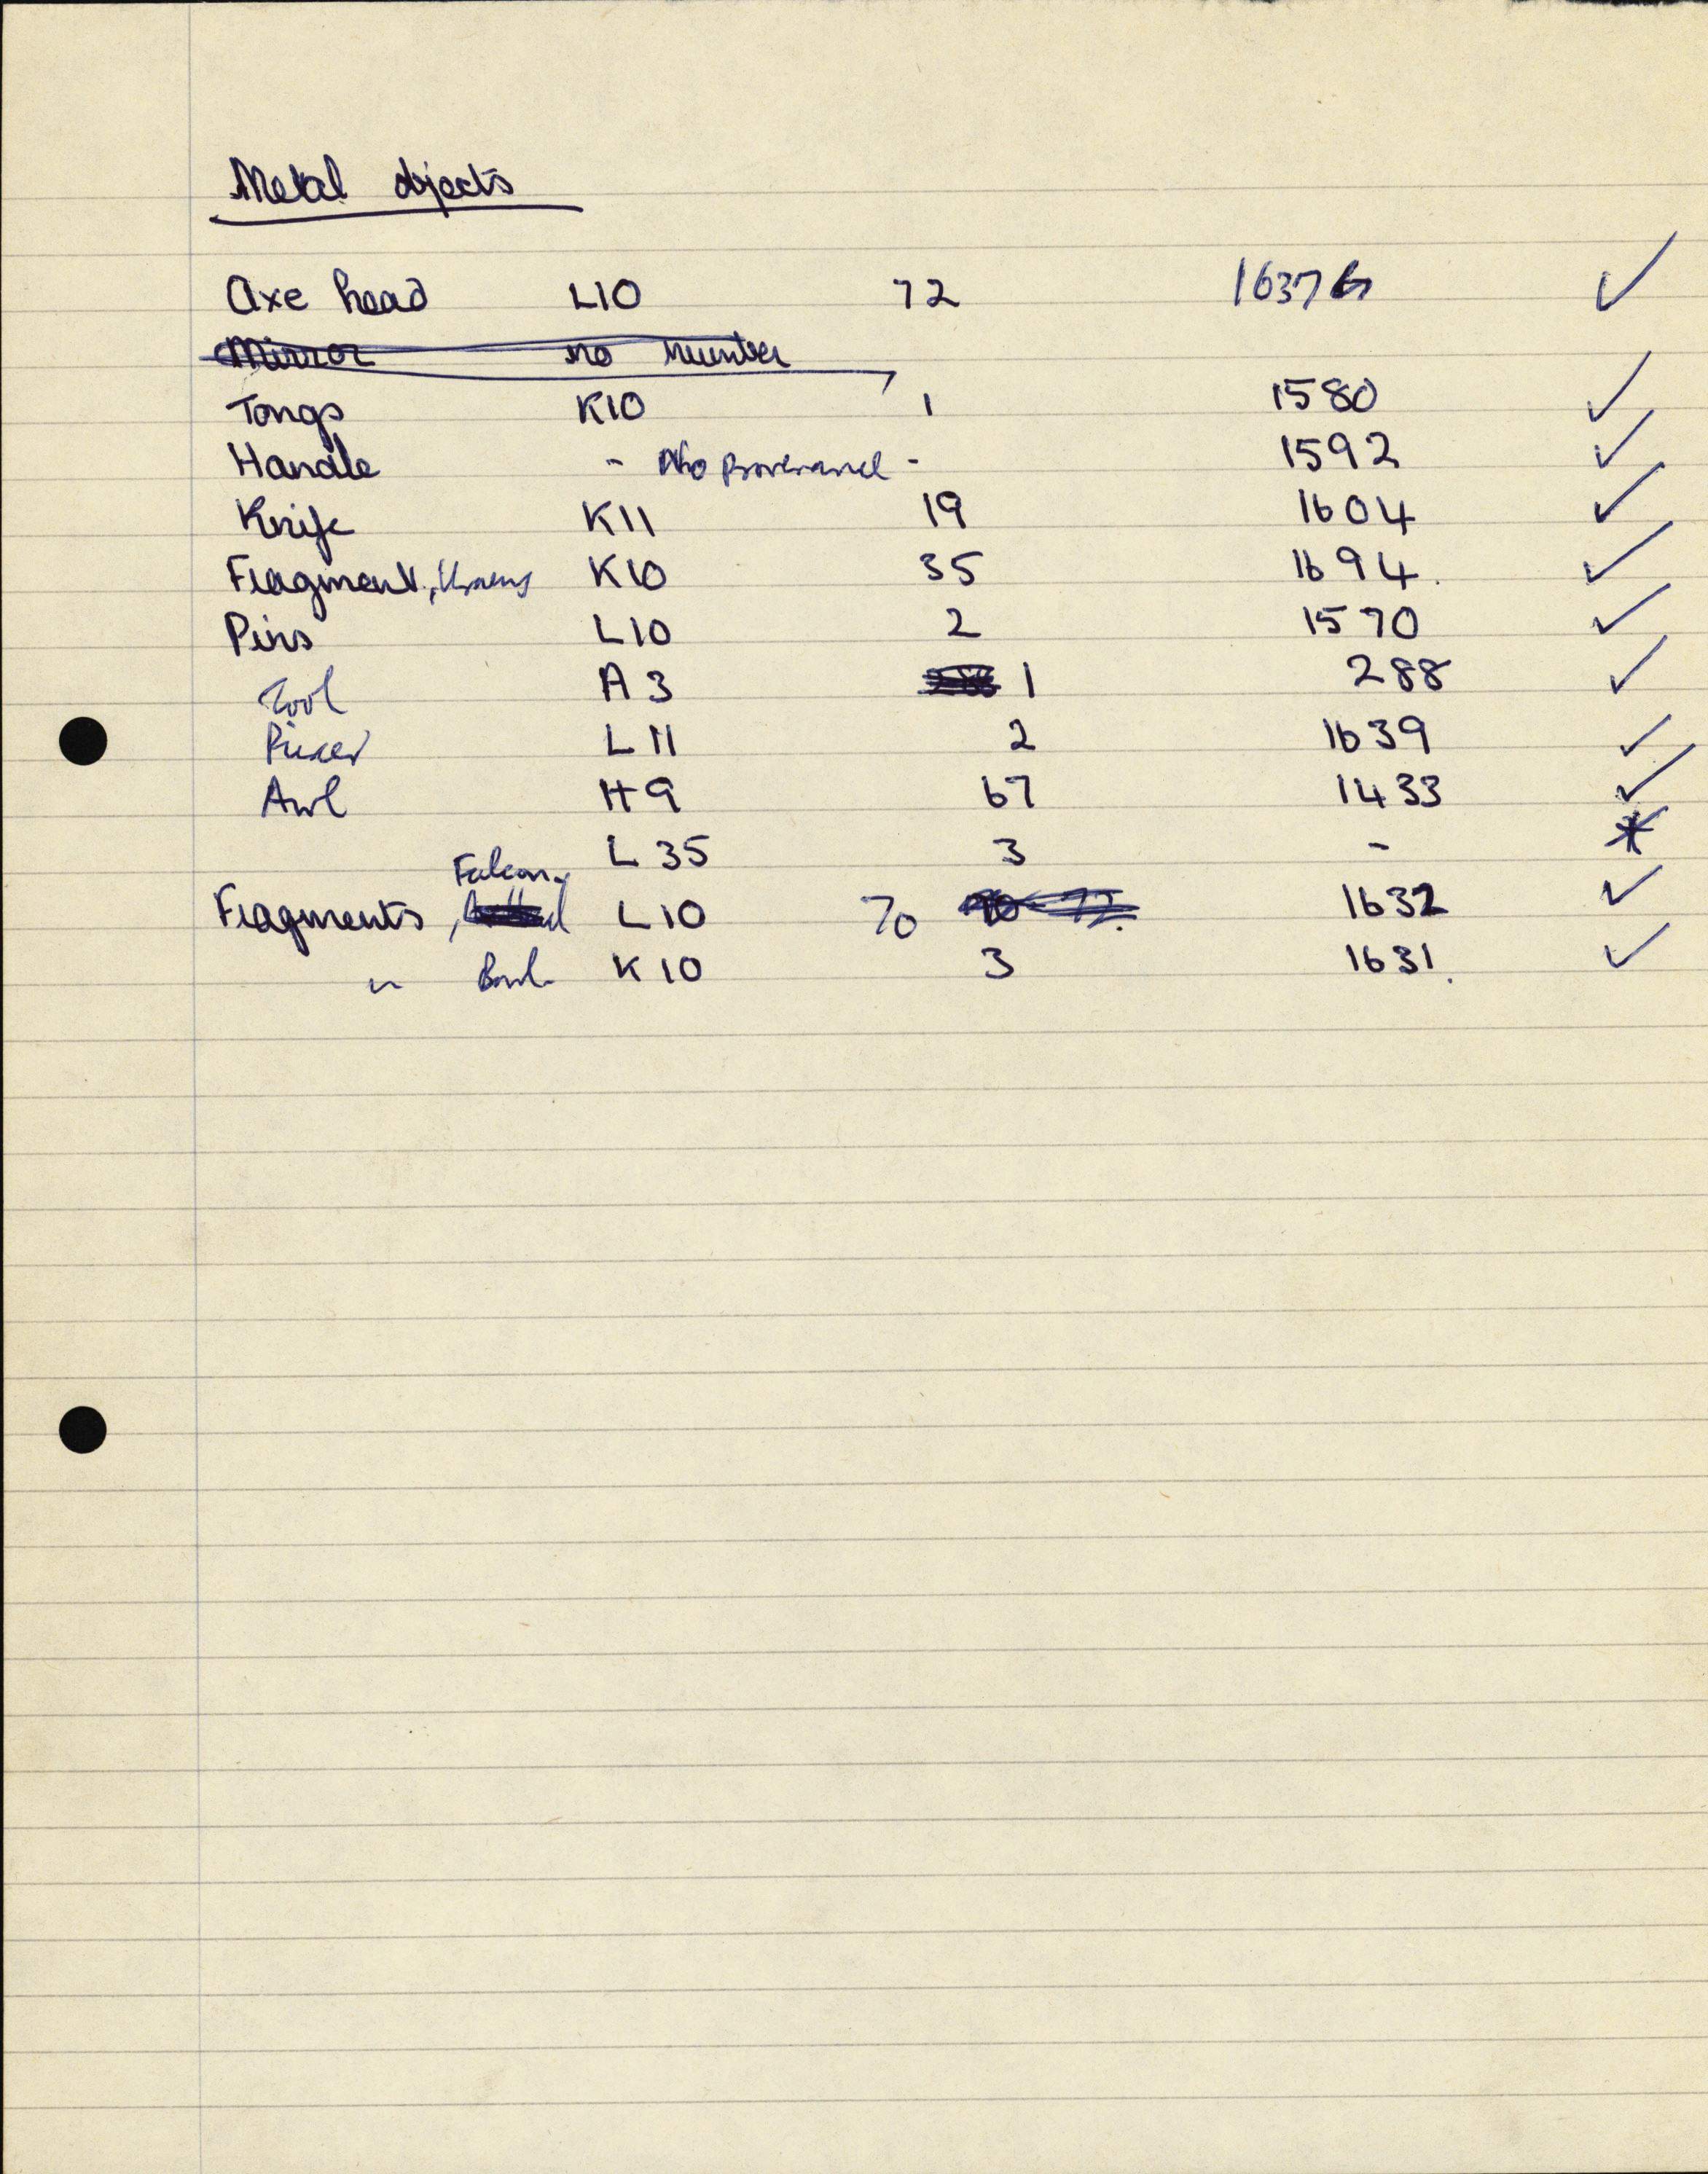 Metal objects
Axe head L10 72 1637G ✓
Mirror no number
Tongs K10 1 1580 ✓
Handle - No Provenance - 1592 ✓
Knife K11 19 1604 ✓
Fragment, Uraeus K10 35 1694. ✓
Pins L10 2 1570 ✓
Tool A3 1 288 ✓
L11 2 1639 ✓
Awl H9 67 1433 ✓
L35 3 - *
Falcon
Fragments, L10 70 1632 ✓
" Bowl K10 3 1631. ✓